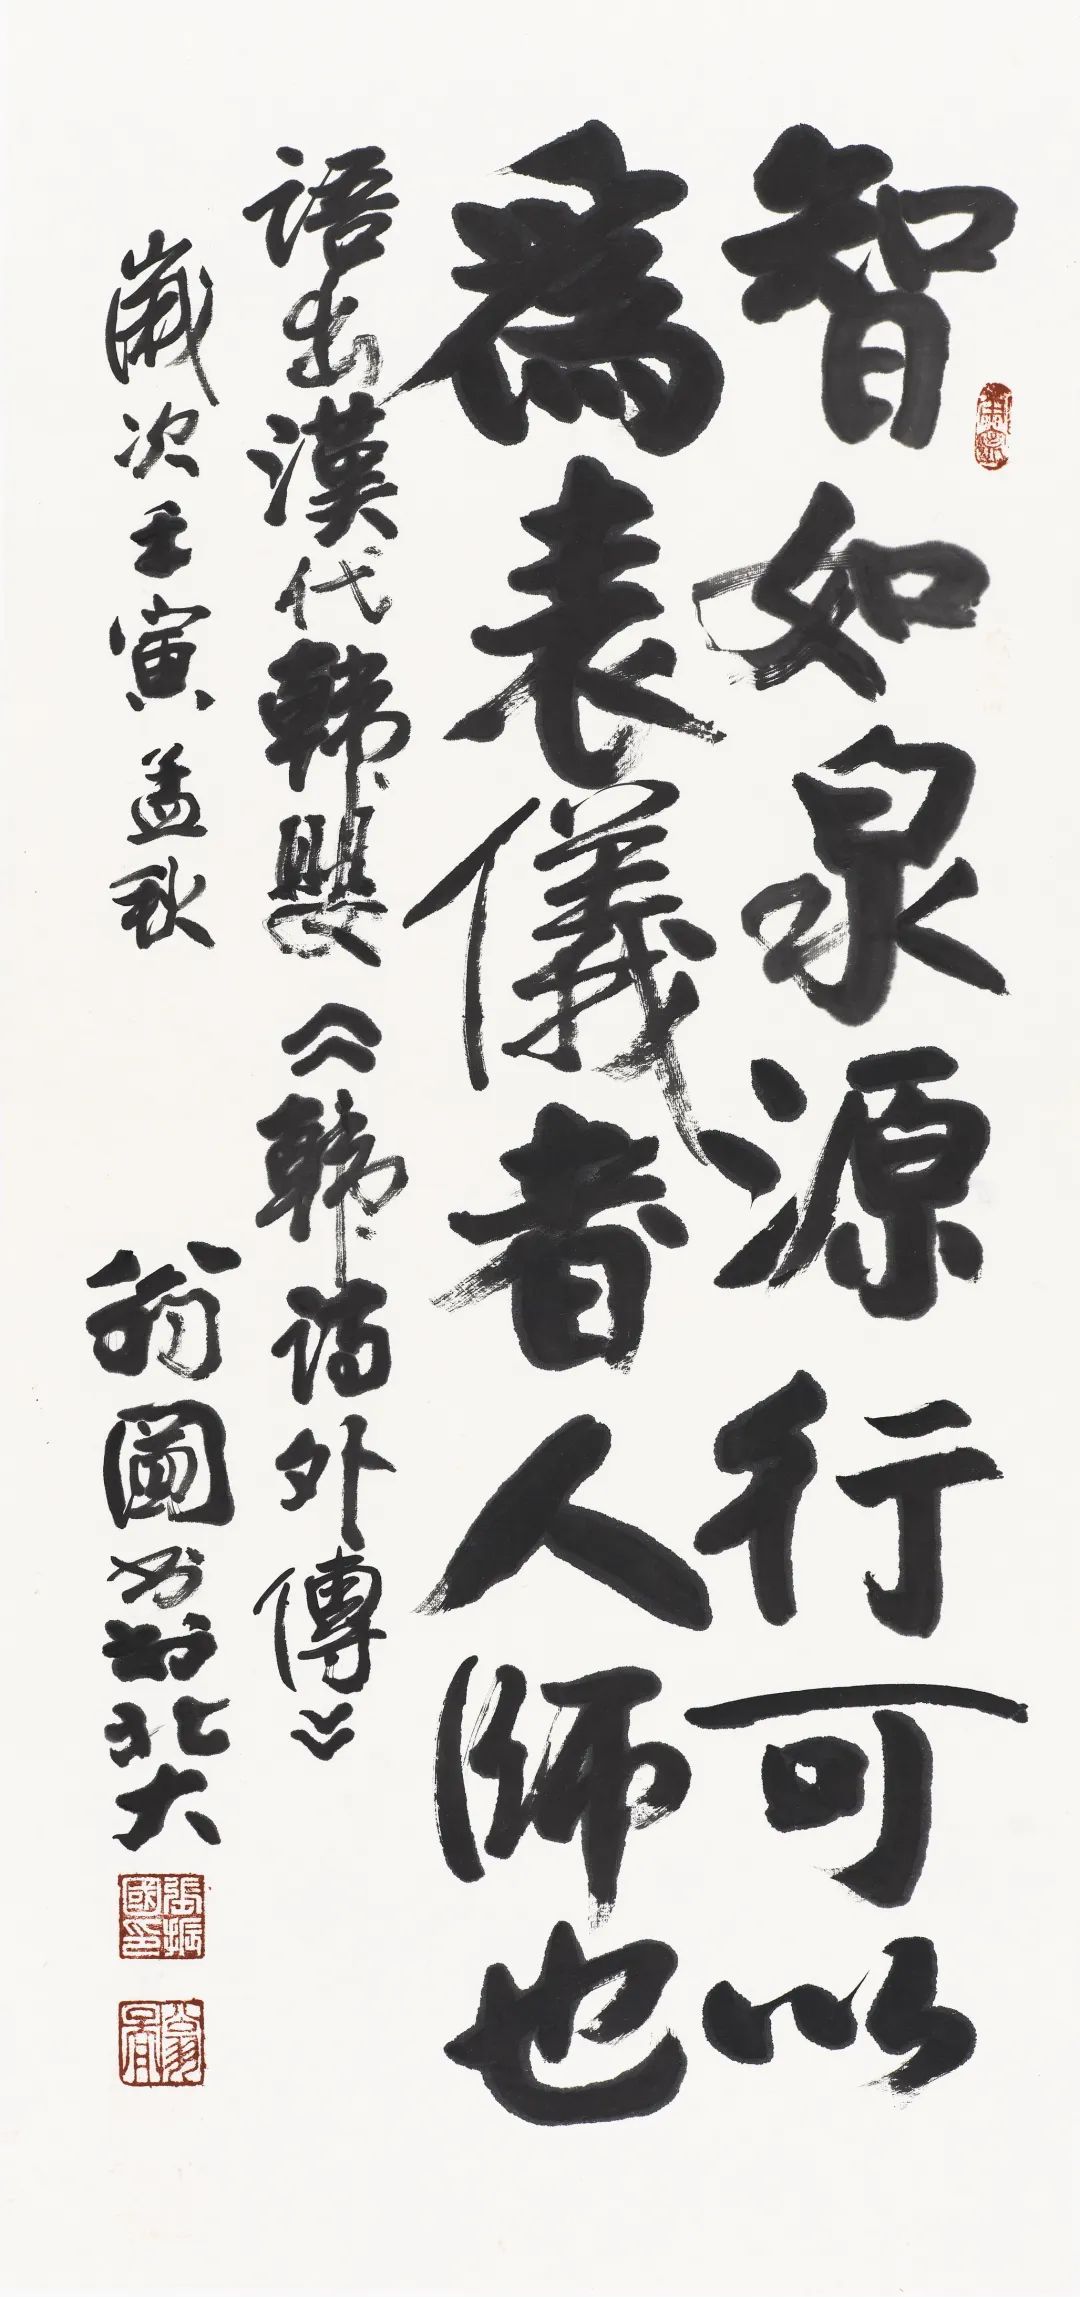 智如泉源行可以
為表儀者人師也
語出漢代韓嬰《韓詩外傳》
歲次壬寅孟秋
翁圖書於北大
張振國印